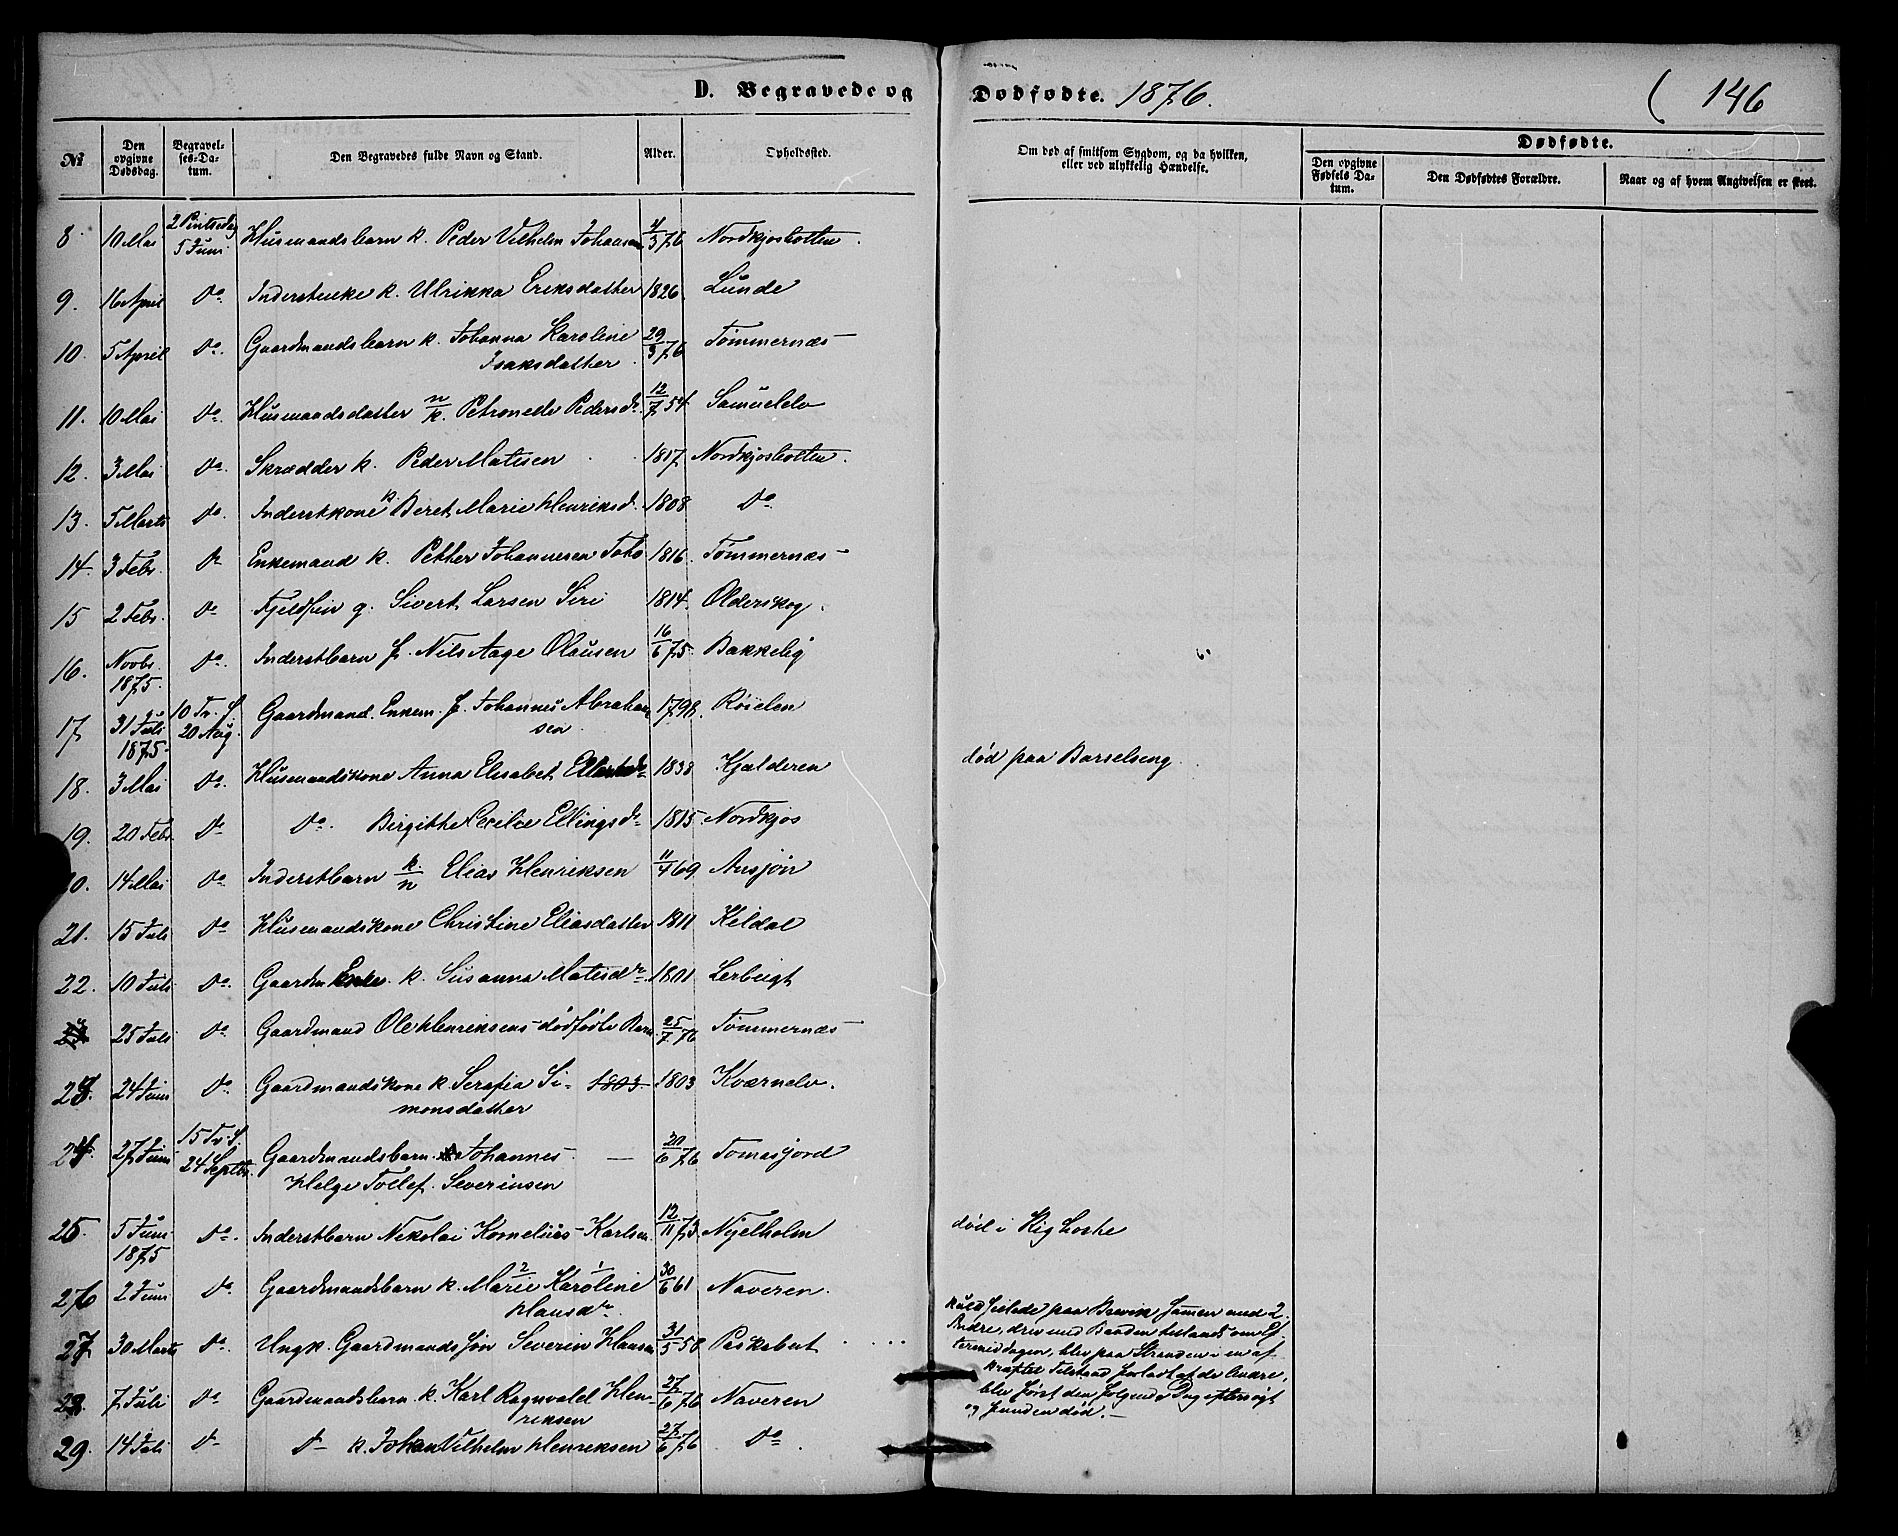 D. Begravede og Dødfødte. 1876. ( 146
№
Den opgivne Dødsdag.
Begravel-ses-Da-tum.
Den Begravedes fulde Navn og Stand.
Alder.
Opholdssted.
Om død af smitsom Sygdom, og da hvilken,
eller ved ulykkelig Hændelse.
Dødfødte.
Den opgivne Fødsels Da-tum.
Den Dødfødtes Forældre.
Naar og af hvem Angivelsen er skeet.
8 10 Mai 2 Pintsedag 5 Juni Husmandsbarn k. Peder Vilhelm Johansen 4/3 76 Nordkjosbotten.
9. 16 April Do. Inderstenke k. Ulrikka Eriksdatter 1826. Lunde
10. 5 April Do. Gaardmandsbarn k. Johanna Karoline 29/3 76 Tømmernæs
Isaksdatter
11. 10 Mai Do. Husmandsdatter n/k. Petronele Pedersdr. 12/7 54. Samuelelv
12. 3 Mai Do. Skrædder k. Peder Matisen 1817. Nordkjosbotten.
13. 5 Marts Do. Inderstkone k. Beret Marie Henriksd. 1808 Do.
14. 3 Febr. Do Enkemand k. Petter Johannesen 1816. Tømmernæs
15 2 Febr. Do Fjeldfin g. Sivert Larsen Siri 1814. Olderskog.
16. Novbr. 1875. Do. Inderstbarn f. Nils Aage Olausen 16/6 75. Bakkelig
17 31 Juli 1875. 10 Tr. S. 20 Aug. Gaardmand. Enkem. f. Johannes Abraham- 1798. Røielen
sen
18. 3 Mai Do. Husmandskone Anna Elisabet 1838 Kjelderen død paa Barselseng
19. 20 Febr. Do Do. Birgithe Cecilie Ellingsdr. 1815. Nordkjos
20. 14 Mai Do Inderstbarn k./n Elias Henriksen 11/4 69 Ansjøn
21. 15 Juli Do Husmandskone Christine Eliasdatter 1811 Kildal
22. 10 Juli Do. Gaardm Enke. k. Susanna Matisdr. 1801 Lerbeigt
25 Juli Do Gaardmand Ole Henriksens dødfødte Barn 25/7 76 Tømmernæs
23. 24 Juni Do Gaardmandskone k. Serafia Si- 1803. 1803 Kværnelv.
monsdatter
24. 27 Juni 15 Tr. S. 24 Septbr. Gaardmandsbarn Johannes 20/6 76 Tomasjord
Helge Tollef. Severinsen
25. 5 Juni 1875 Do. Inderstbarn Nikolai Kornelius Karlsen 12/11 73. Nyelholm død i Kighoste
26 2 Juni Do. Gaardmandsbarn k. Marie Karoline 30/6 61 Naveren.
Hansdr.
27 30 Marts Do. Ungk. Gaardmandssøn Severin Hansen 31/5 58 Paskabut
paa Brevik sammen med 2
Andre, drev med Baaden om Ef-
termiddagen, blev paa Stranden i en af
kræftet Tilstand forladt af de Andre,
blev først den følgende Dag eftersøgt
og funden død.
28. 7 Juli Do Gaardmandsbarn k. Karl Ragnvald Hen- 27/6 76 Naveren
riksen
29. 14 Juli Do Do k. Johan Vilhelm Henriksen 27/6 76 Do